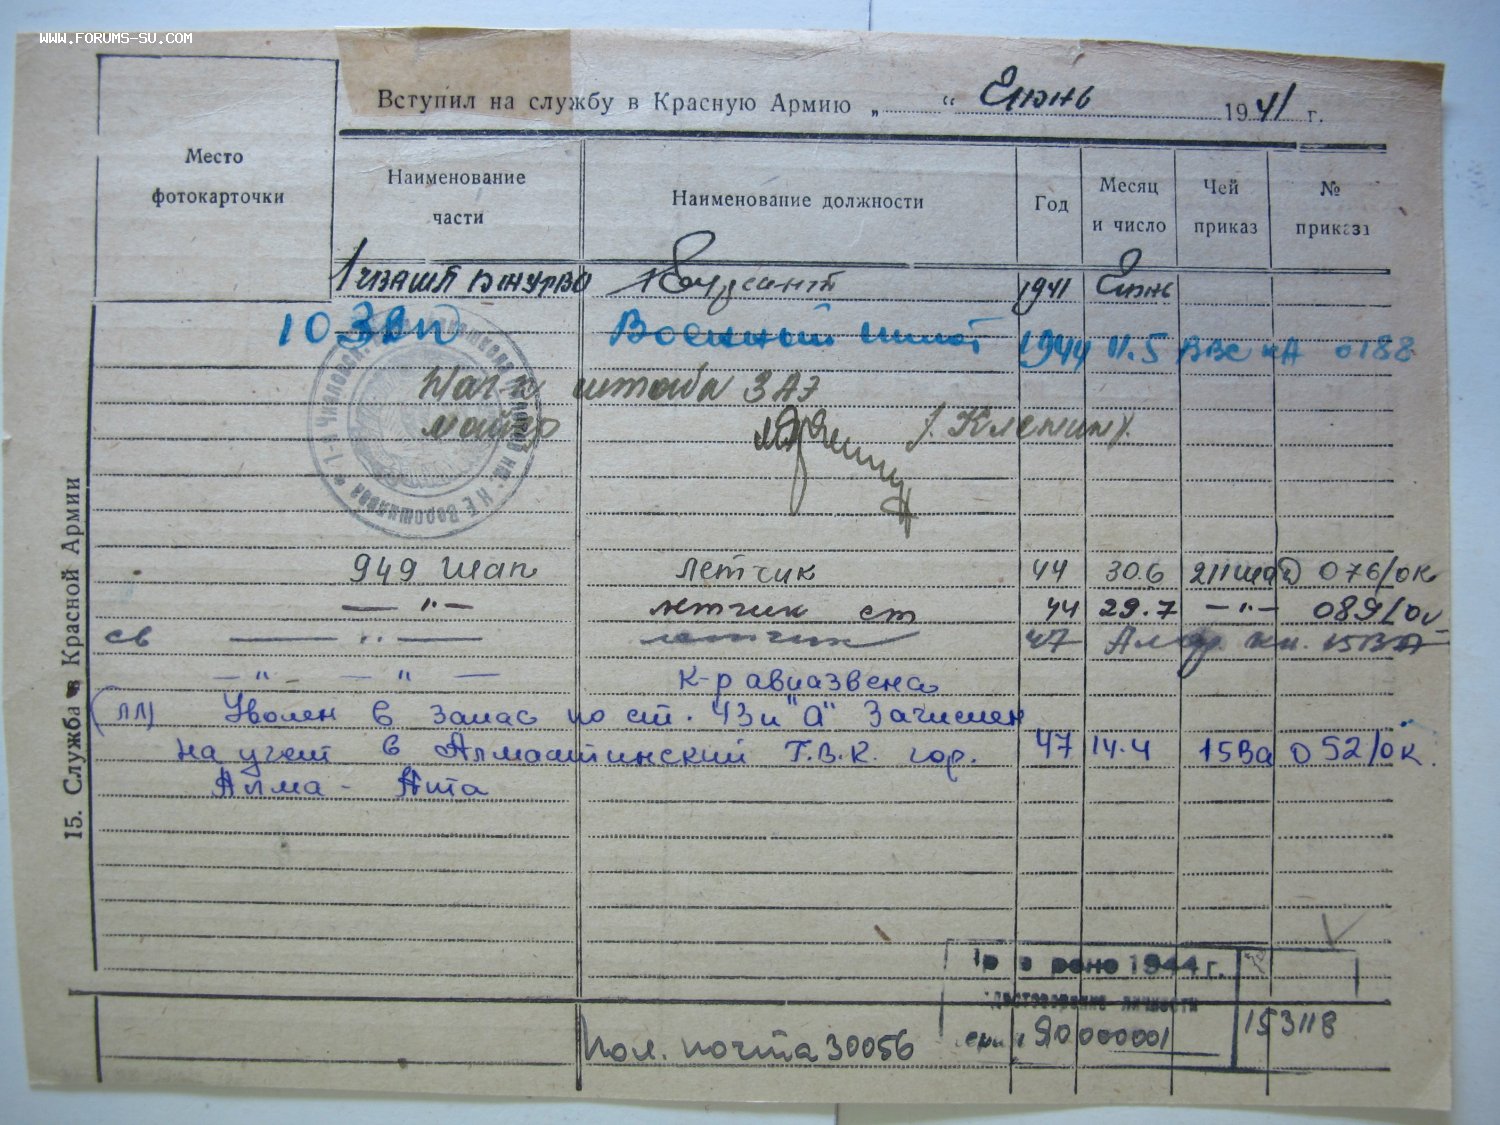 WWW.FORUMS-SU.COM
Вступил на службу в Красную Армию „ “ Июнь 1941 г.
Место фотокарточки
Наименование части
Наименование должности
Год
Месяц и число
Чей приказ
№ приказа
Курсант 1941 Июнь
10 ЗАП Военный пилот 1944 11.5 ВВС КА 0188
Нач-к штаба ЗАЭ
майор /Кленин/
949 шап летчик 44 30.6 211 шад 076/ок
— " — летчик ст 44 29.7 — " — 089/ок
св — " — летчик 47 15ВА
— " — — " — к-р авиазвена
Уволен в запас по ст. 43 п "А" Зачислен
на учет в Алмаатинский Г.В.К. гор. 47 14.4 15Ва 052/ок.
Алма - Ата
15. Служба в Красной Армии
1944 г.
личности
ЯО 000001
153118
Пол. почта 30056